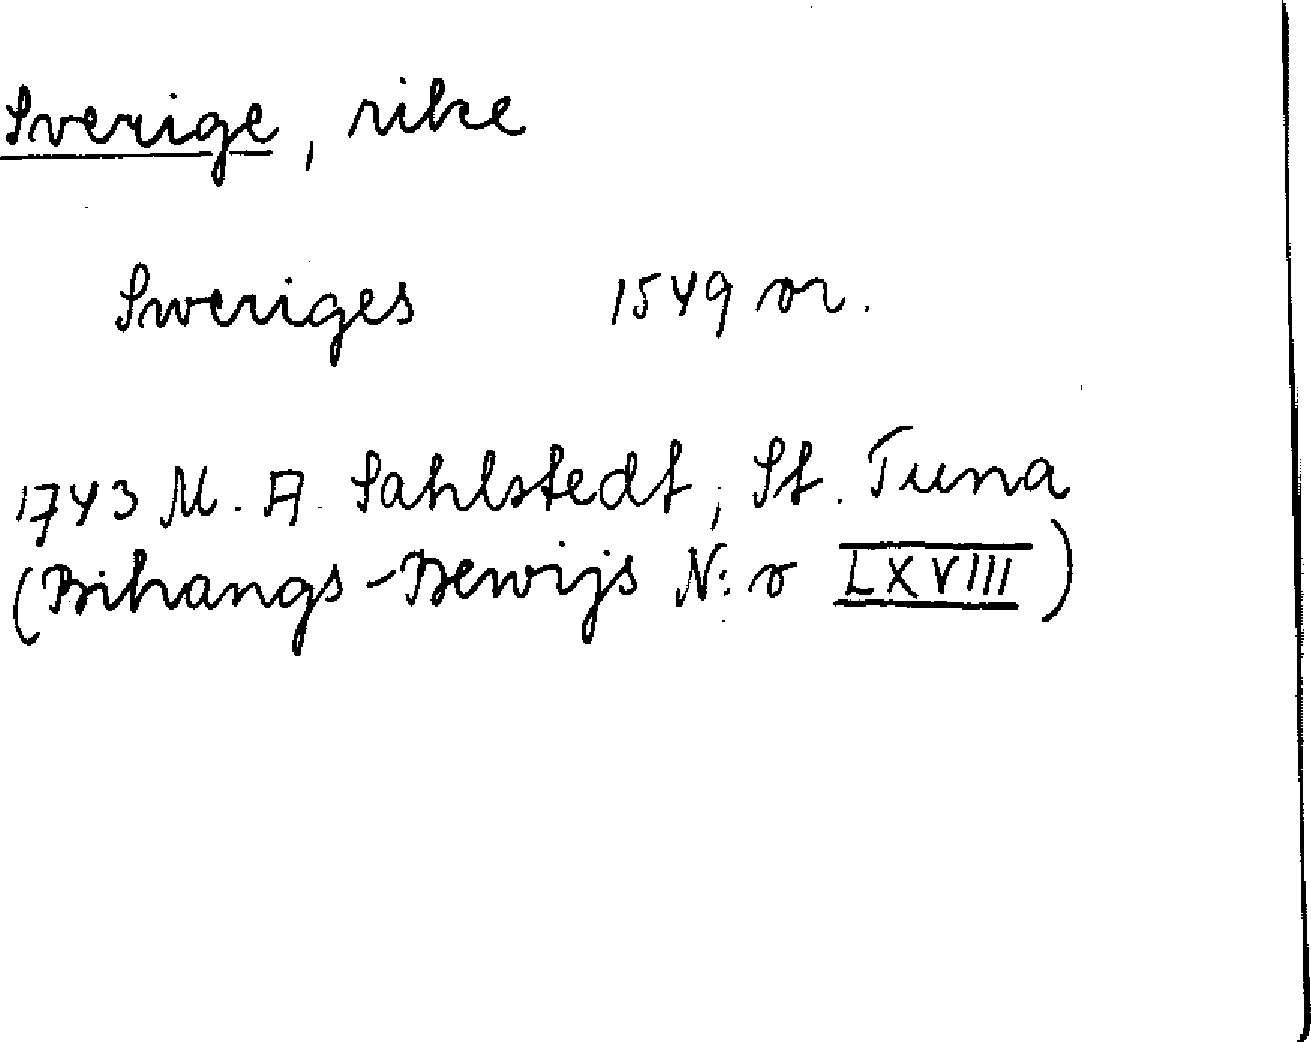 Sverige, rike
Sweriges 1549 or.
1743 M. A. Sahlstedt, St. Tuna
(Bihangs-Bewijs N:o LXVIII)